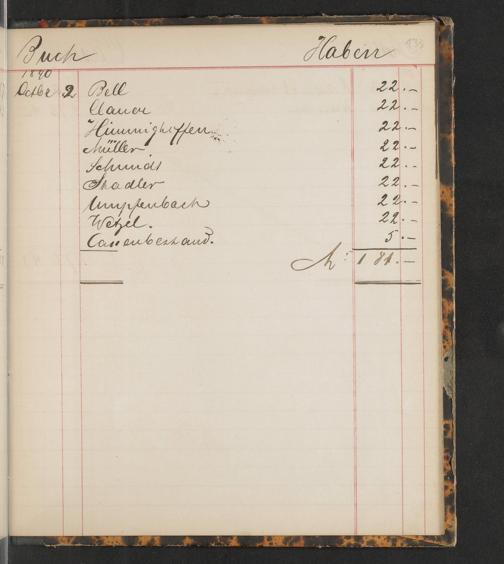 Buch Haben
1890
Octbr 2 Bell 22.-
Clauer 22.-
Himmighoffen 22.-
Müller 22.-
Schmidt 22.-
Stadler 22.-
Umpfenbach 22.-
Wetzel. 22.-
Cassenbestand. 5.-
M. 181.-